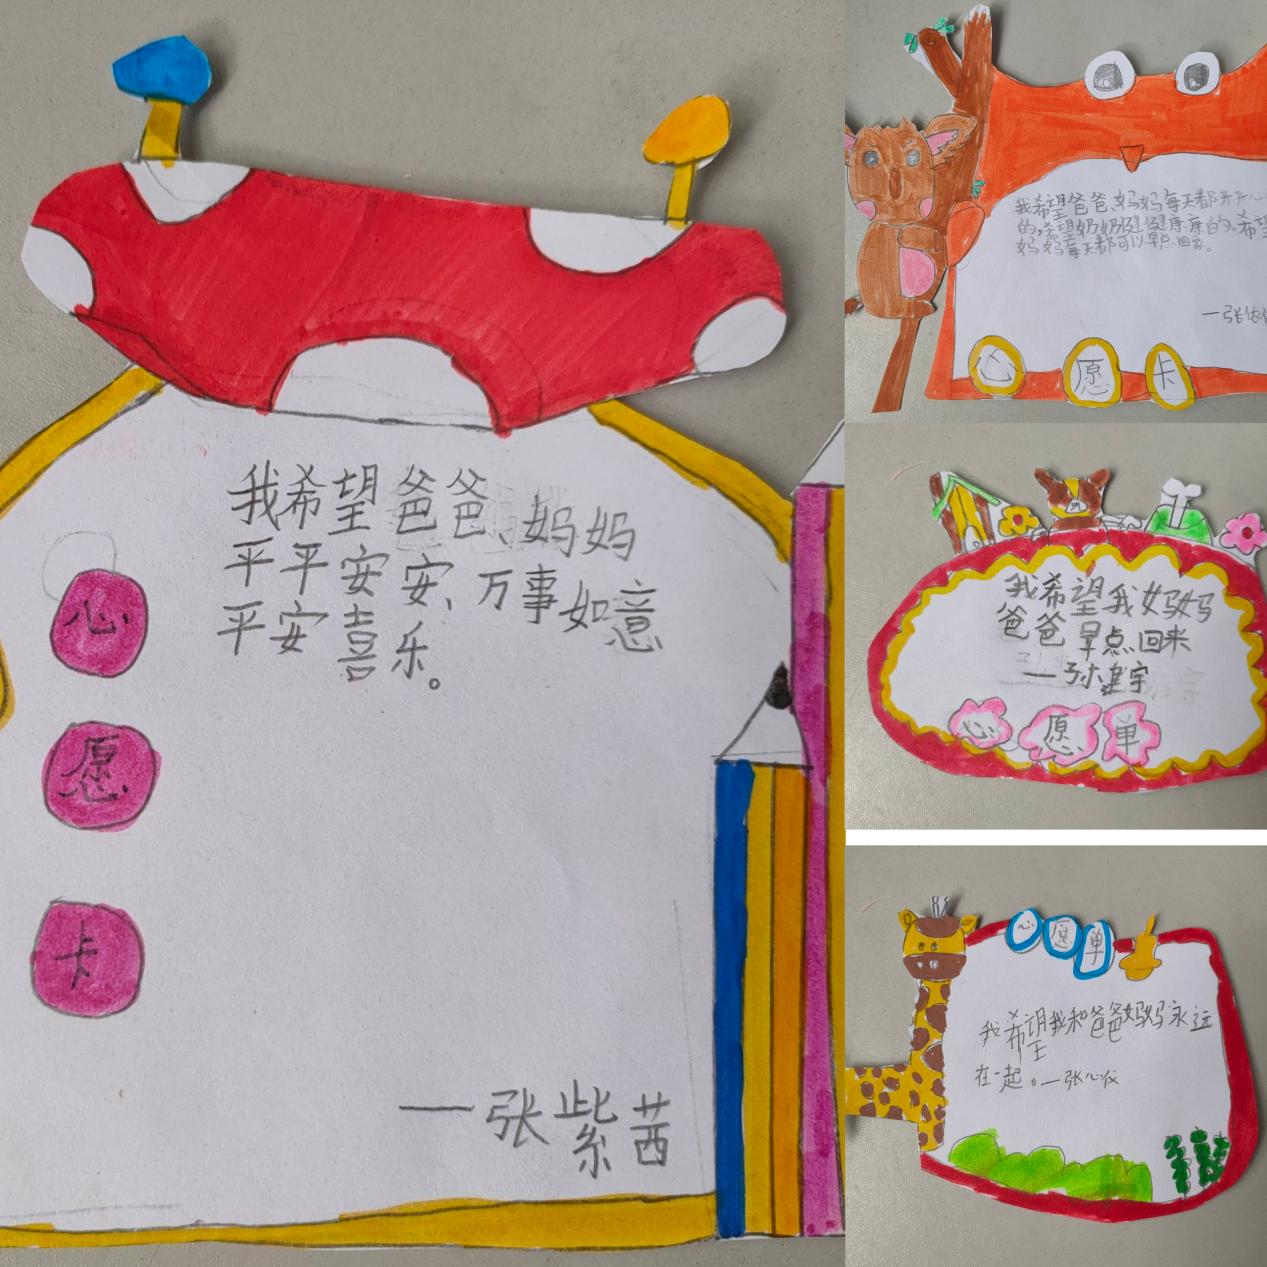 我希望爸爸、妈妈
平平安安、万事如意
平安喜乐。
心
愿
卡
一张紫茜
我希望爸爸、妈妈每天都开开心
的,希望奶奶健健康康的。希望
妈妈每天都可以早点回家。
一张依
心
愿
卡
我希望我妈妈
爸爸早点回来
一孙建宇
心
愿
单
心
愿
单
我希望我和爸爸妈妈永远
在一起。一张心